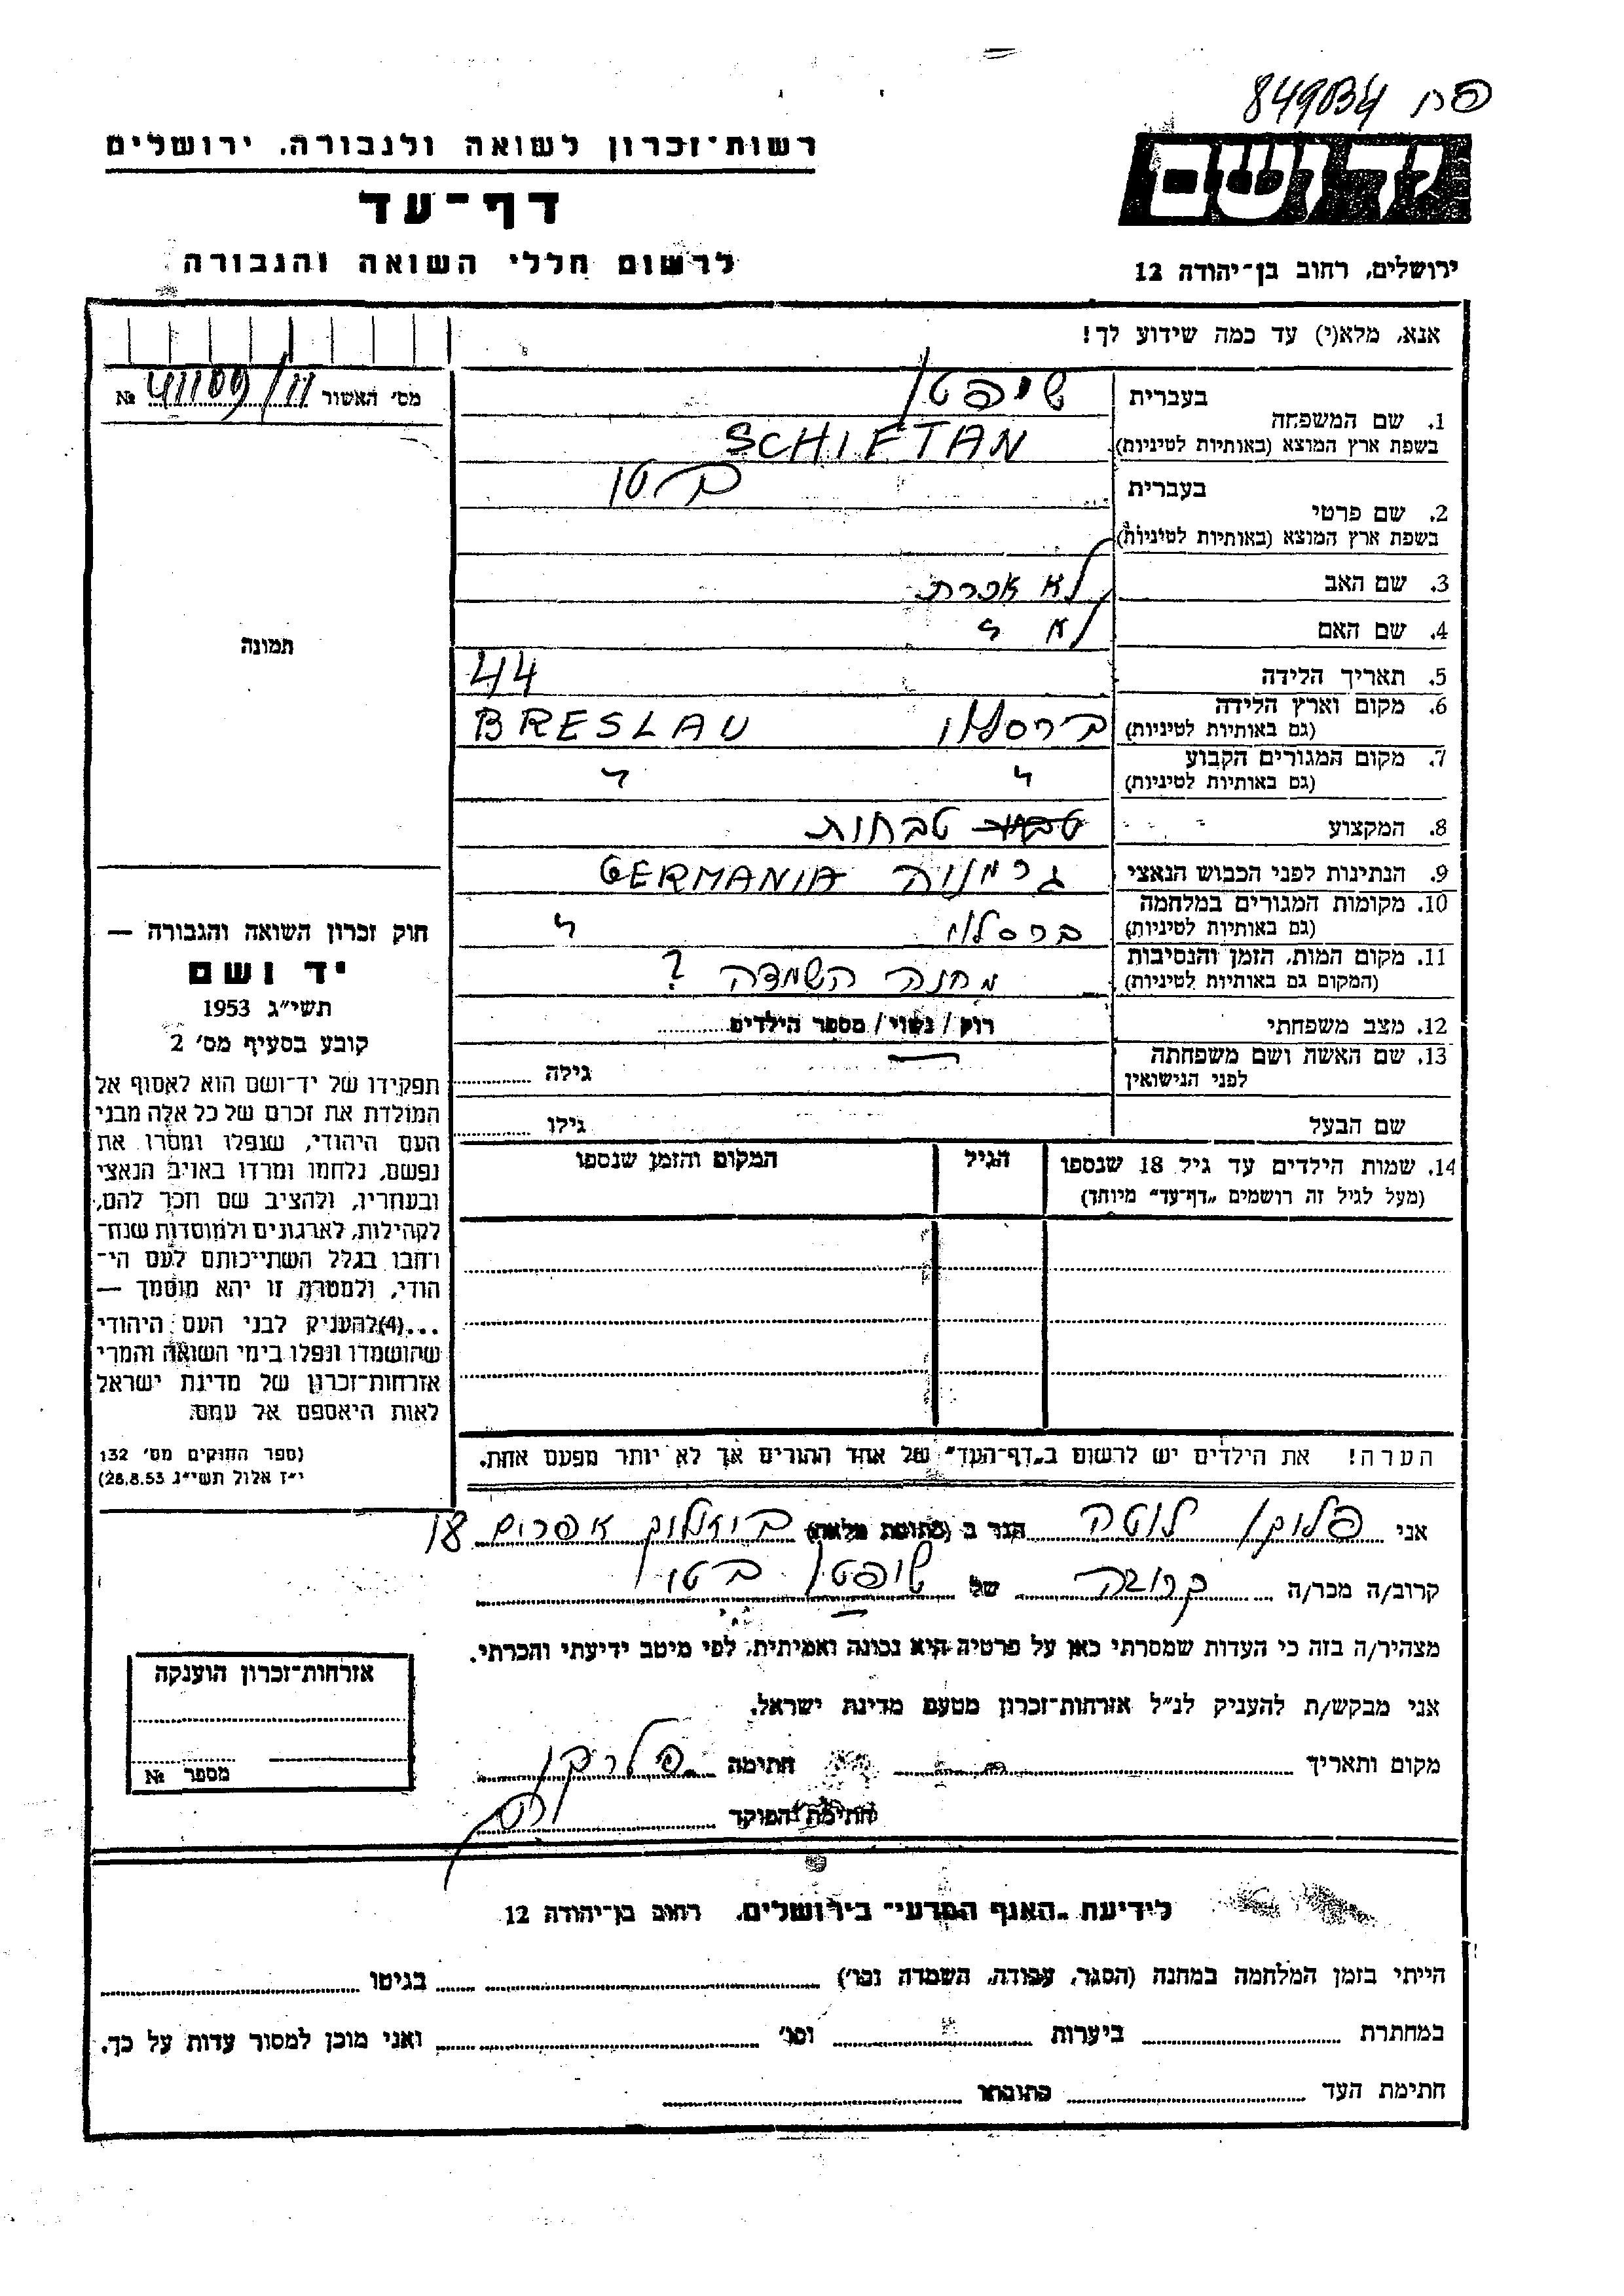 פח 849034
יד ושם
רשות־זכרון לשואה ולגבורה, ירושלים
דף־עד
לרשום חללי השואה והגבורה
ירושלים, רחוב בן־יהודה 12
אנא, מלא(י) עד כמה שידוע לך!
מס׳ האשור 41109/11 №
1. שם המשפחה
בעברית שיפטן
בשפת ארץ המוצא (באותיות לטיניות) SCHIFTAN
2. שם פרטי
בעברית
בשפת ארץ המוצא (באותיות לטיניות)
3. שם האב לא זכרת
4. שם האם לא "
5. תאריך הלידה 44
6. מקום וארץ הלידה
(גם באותיות לטיניות) ברסלאו BRESLAU
7. מקום המגורים הקבוע
(גם באותיות לטיניות) " "
8. המקצוע טבחות
9. הנתינות לפני הכבוש הנאצי גרמניה GERMANIA
10. מקומות המגורים במלחמה
(גם באותיות לטיניות) ברסלאו "
11. מקום המות, הזמן והנסיבות
(המקום גם באותיות לטיניות) מחנה השמדה ?
12. מצב משפחתי רוק/ נשוי/ מספר הילדים
13. שם האשה ושם משפחתה
לפני הנישואין גילה
שם הבעל גילו
14. שמות הילדים עד גיל 18 שנספו הגיל המקום והזמן שנספו
(מעל לגיל זה רושמים „דף־עד״ מיוחד)
הערה! את הילדים יש לרשום ב„דף־העד״ של אחד ההורים אך לא יותר מפעם אחת.
תמונה
חוק זכרון השואה והגבורה —
יד ושם
תשי״ג 1953
קובע בסעיף מס׳ 2
תפקידו של יד־ושם הוא לאסוף אל
המולדת את זכרם של כל אלה מבני
העם היהודי, שנפלו ומסרו את
נפשם, נלחמו ומרדו באויב הנאצי
ובעוזריו, ולהציב שם וזכר להם,
לקהילות, לארגונים ולמוסדות שנח־
רבו בגלל השתייכותם לעם הי־
הודי, ולמטרה זו יהא מוסמך —
...(4)להעניק לבני העם היהודי
שהושמדו ונפלו בימי השואה והמרי
אזרחות־זכרון של מדינת ישראל
לאות היאספם אל עמם.
(ספר החוקים מס׳ 132
י״ז אלול תשי״ג 28.8.53)
אני לוטה הגר ב (כתובת מלאה) אפרים 18
קרוב/ה מכר/ה קרובה של שיפטן
מצהיר/ה בזה כי העדות שמסרתי כאן על פרטיה היא נכונה ואמיתית, לפי מיטב ידיעתי והכרתי.
אני מבקש/ת להעניק לנ״ל אזרחות־זכרון מטעם מדינת ישראל.
מקום ותאריך חתימה
חתימת הפוקד
אזרחות־זכרון הוענקה
מספר №
לידיעת „האגף המדעי״ בירושלים, רחוב בן־יהודה 12
הייתי בזמן המלחמה במחנה (הסגר, עבודה, השמדה וכו׳) בגיטו
במחתרת ביערות וכו׳ ואני מוכן למסור עדות על כך.
חתימת העד כתובתו